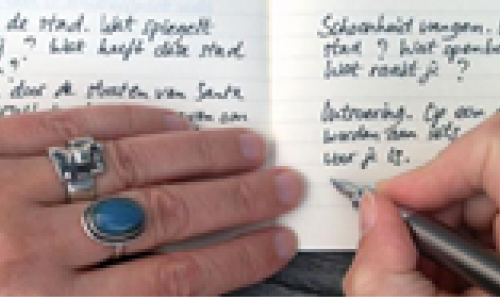 de stad. Wat spiegelt
? Wat heeft deze stad
door de straten van Santa
van
Schoonheid vangen.
stad? Wat
Wat raakt je?
Ontroering. Op een
worden dan iets
waar je is.